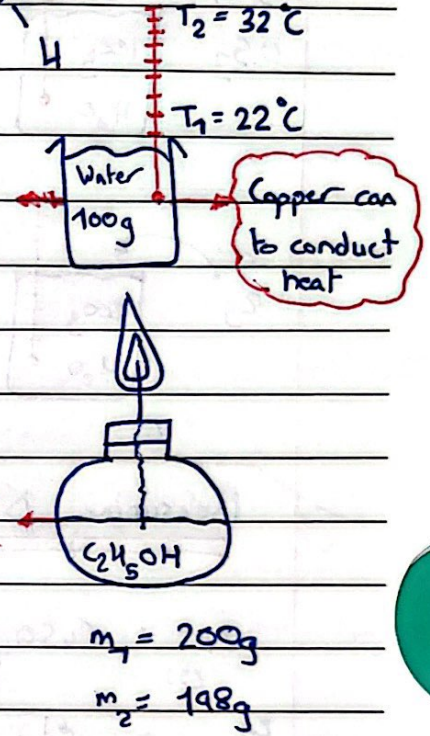 T₂ = 32°C
4
T₁ = 22°C
Water
100g
Copper can
to conduct
heat
C₂H₅OH
m₁ = 200g
m₂ = 198g